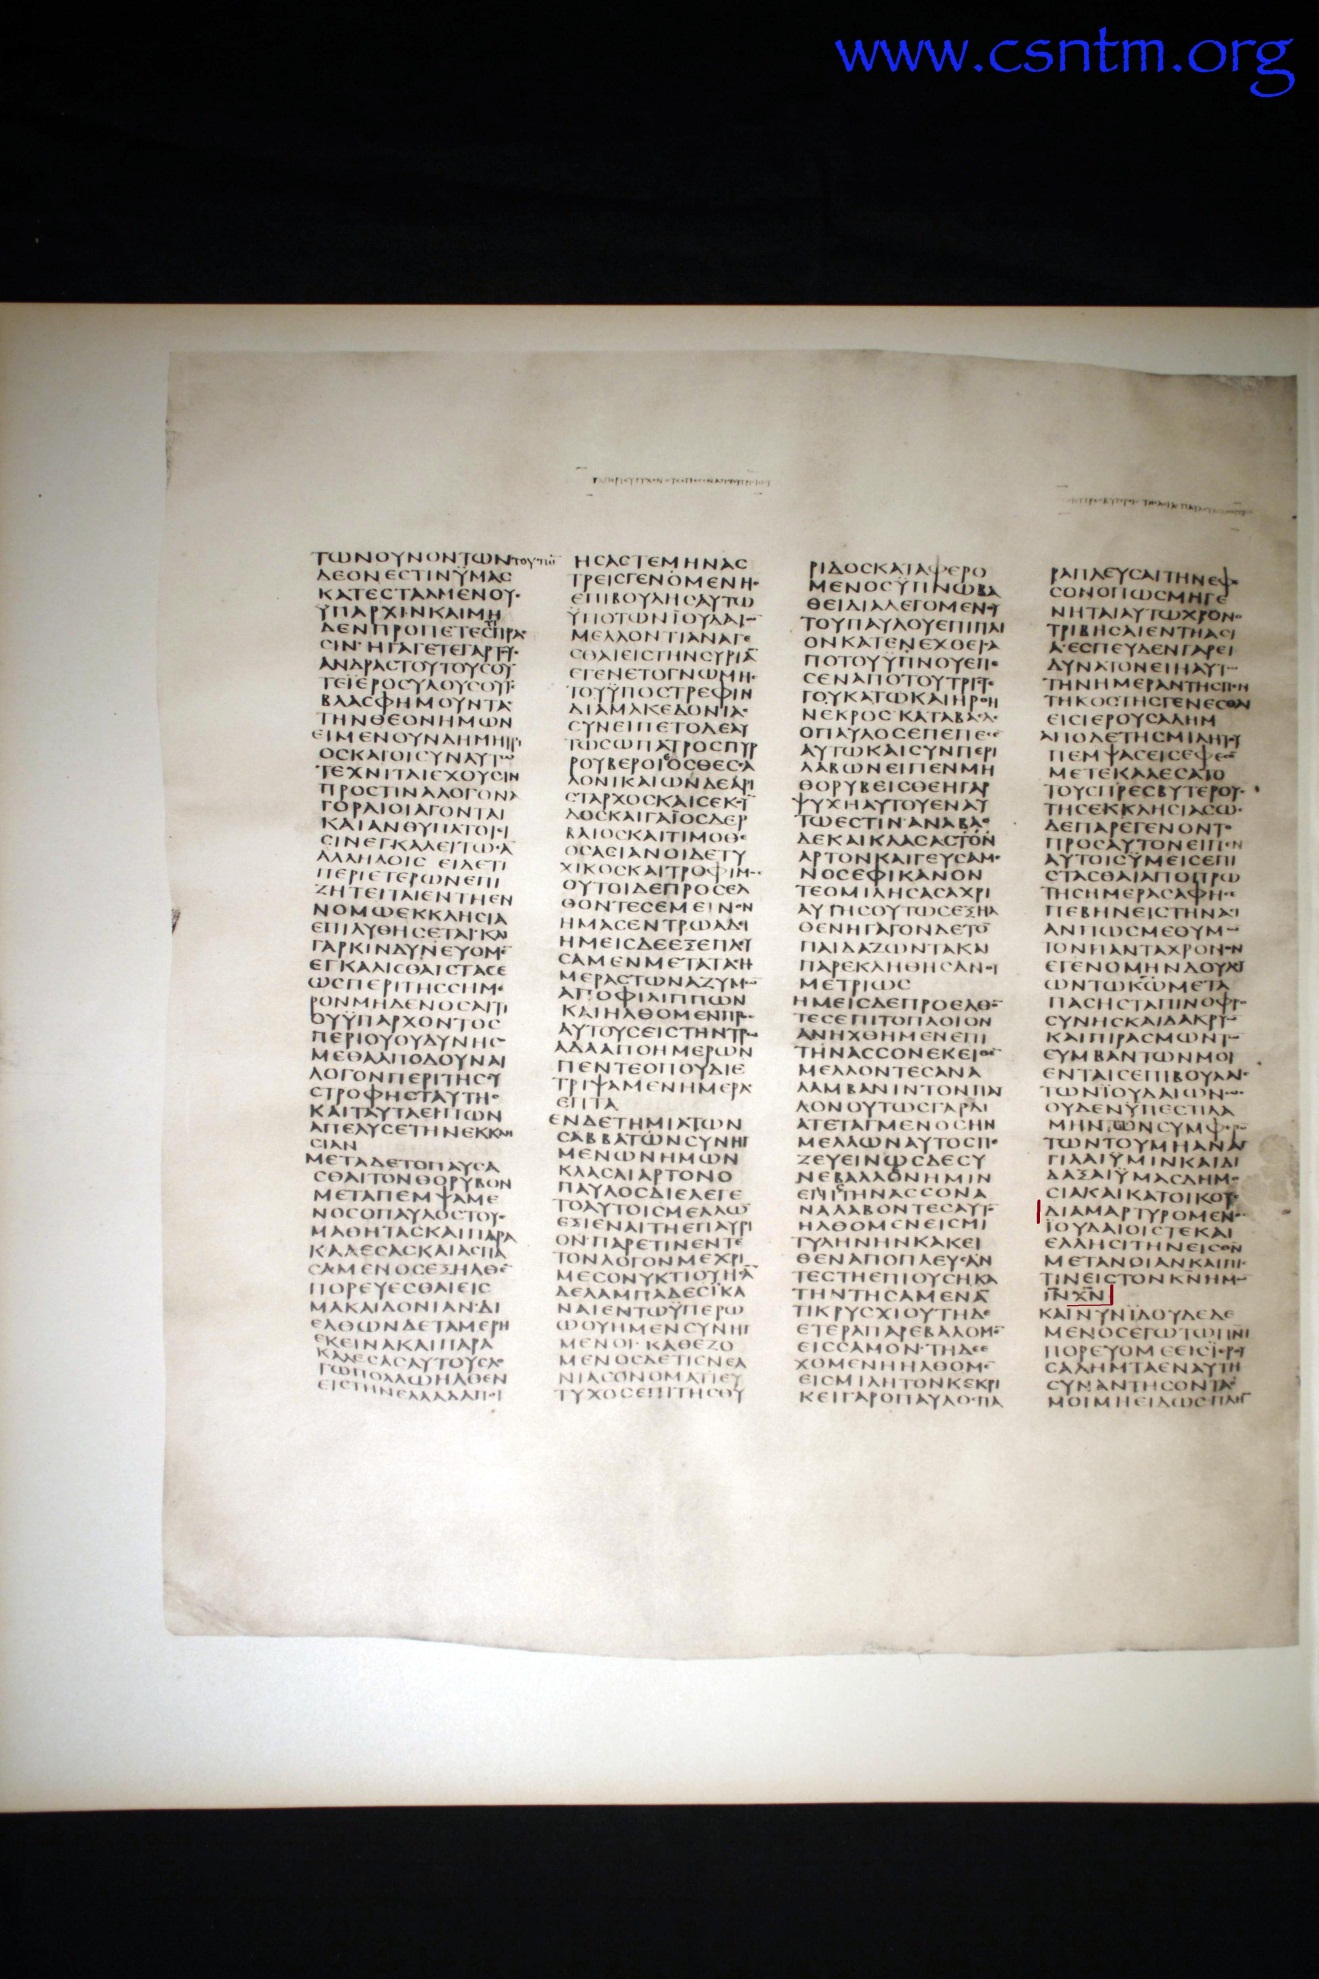 www.csntm.org
ΤΩΝΟΥΝΟΝΤΩΝΤΟΥΤΩ
ΔΕΟΝΕCΤΙΝΫΜΑC
ΚΑΤΕCΤΑΛΜΕΝΟΥ
ΫΠΑΡΧΙΝΚΑΙΜΗ
ΔΕΝΠΡΟΠΕΤΕCΠΡΑ
CΙΝ·ΗΓΑΓΕΤΕΓΑΡΤΥ
ΑΝΔΡΑCΤΟΥΤΟΥCΟΥ
ΤΕΪΕΡΟCΥΛΟΥCΟΥΤΕ
ΒΛΑCΦΗΜΟΥΝΤΑ
ΤΗΝΘΕΟΝΗΜΩΝ
ΕΙΜΕΝΟΥΝΔΗΜΗΤΡΙ
ΟCΚΑΙΟΙCΥΝΑΥΤΩ
ΤΕΧΝΙΤΑΙΕΧΟΥCΙΝ
ΠΡΟCΤΙΝΑΛΟΓΟΝΑ
ΓΟΡΑΙΟΙΑΓΟΝΤΑΙ
ΚΑΙΑΝΘΥΠΑΤΟΙΙ
CΙΝΕΓΚΑΛΕΙΤΩΑ
ΛΛΗΛΟΙC ΕΙΔΕΤΙ
ΠΕΡΙΕΤΕΡΩΝΕΠΙ
ΖΗΤΕΙΤΑΙΕΝΤΗΕΝ
ΝΟΜΩΕΚΚΛΗCΙΑ
ΕΠΙΛΥΘΗCΕΤΑΙ·ΚΑΙ
ΓΑΡΚΙΝΔΥΝΕΥΟΜΕ
ΕΓΚΑΛΙCΘΑΙCΤΑCΕ
ΩCΠΕΡΙΤΗCCΗΜΕ
ΡΟΝΜΗΔΕΝΟCΑΙΤΙ
ΟΥΫΠΑΡΧΟΝΤΟC
ΠΕΡΙΟΥΟΥΔΥΝΗC
ΜΕΘΑΑΠΟΔΟΥΝΑΙ
ΛΟΓΟΝΠΕΡΙΤΗCCΥ
CΤΡΟΦΗCΤΑΥΤΗC
ΚΑΙΤΑΥΤΑΕΙΠΩΝ
ΑΠΕΛΥCΕΤΗΝΕΚΚΛΗ
CΙΑΝ
ΜΕΤΑΔΕΤΟΠΑΥCΑ
CΘΑΙΤΟΝΘΟΡΥΒΟΝ
ΜΕΤΑΠΕΜΨΑΜΕ
ΝΟCΟΠΑΥΛΟCΤΟΥC
ΜΑΘΗΤΑCΚΑΙΠΑΡΑ
ΚΑΛΕCΑCΚΑΙΑCΠΑ
CΑΜΕΝΟCΕΞΗΛΘΕ
ΠΟΡΕΥΕCΘΑΙΕΙC
ΜΑΚΑΙΔΟΝΙΑΝ·ΔΙ
ΕΛΘΩΝΔΕΤΑΜΕΡΗ
ΕΚΕΙΝΑΚΑΙΠΑΡΑ
ΚΑΛΕCΑCΑΥΤΟΥCΛΟ
ΓΩΠΟΛΛΩΗΛΘΕΝ
ΕΙCΤΗΝΕΛΛΑΔΑΠΟΙ
ΗCΑCΤΕΜΗΝΑC
ΤΡΕΙCΓΕΝΟΜΕΝΗC
ΕΠΙΒΟΥΛΗCΑΥΤΩ
ΫΠΟΤΩΝΪΟΥΔΑΙΩ
ΜΕΛΛΟΝΤΙΑΝΑΓΕ
CΘΑΙΕΙCΤΗΝCΥΡΙΑ̅
ΕΓΕΝΕΤΟΓΝΩΜΗC
ΤΟΥΫΠΟCΤΡΕΦΙΝ
ΔΙΑΜΑΚΕΔΟΝΙΑC
CΥΝΕΙΠΕΤΟΔΕΑΥ
ΤΩCΩΠΑΤΡΟCΠΥΡ
ΡΟΥΒΕΡΟΙΟCΘΕCCΑ
ΛΟΝΙΚΑΙΩΝΔΕΑΡΙ
CΤΑΡΧΟCΚΑΙCΕΚΟΥ
ΔΟCΚΑΙΓΑΪΟCΔΕΡ
ΒΑΙΟCΚΑΙΤΙΜΟΘΕ
ΟCΑCΙΑΝΟΙΔΕΤΥ
ΧΙΚΟCΚΑΙΤΡΟΦΙΜΟC
ΟΥΤΟΙΔΕΠΡΟCΕΛ
ΘΟΝΤΕCΕΜΕΙΝΟΝ
ΗΜΑCΕΝΤΡΩΑΔΙ
ΗΜΕΙCΔΕΕΞΕΠΛΕΥ
CΑΜΕΝΜΕΤΑΤΑCΗ
ΜΕΡΑCΤΩΝΑΖΥΜΩ
ΑΠΟΦΙΛΙΠΠΩΝ
ΚΑΙΗΛΘΟΜΕΝΠΡΟC
ΑΥΤΟΥCΕΙCΤΗΝΤΡΩ
ΑΔΑΑΠΟΗΜΕΡΩΝ
ΠΕΝΤΕΟΠΟΥΔΙΕ
ΤΡΙΨΑΜΕΝΗΜΕΡΑC
ΕΠΤΑ
ΕΝΔΕΤΗΜΙΑΤΩΝ
CΑΒΒΑΤΩΝCΥΝΗΓ
ΜΕΝΩΝΗΜΩΝ
ΚΛΑCΑΙΑΡΤΟΝΟ
ΠΑΥΛΟCΔΙΕΛΕΓΕ
ΤΟΑΥΤΟΙCΜΕΛΛΩ̅
ΕΞΙΕΝΑΙΤΗΕΠΑΥΡΙ
ΟΝ·ΠΑΡΕΤΙΝΕΝΤΕ
ΤΟΝΛΟΓΟΝΜΕΧΡΙ
ΜΕCΟΝΥΚΤΙΟΥΗCΑ̅
ΔΕΛΑΜΠΑΔΕCΪΚΑ
ΝΑΙΕΝΤΩΫΠΕΡΩ
ΩΟΥΗΜΕΝCΥΝΗΓ
ΜΕΝΟΙ·ΚΑΘΕΖΟ
ΜΕΝΟCΔΕΤΙCΝΕΑ
ΝΙΑCΟΝΟΜΑΤΙΕΥ
ΤΥΧΟCΕΠΙΤΗCΘΥ
ΡΙΔΟCΚΑΤΑΦΕΡΟ
ΜΕΝΟCΫΠΝΩΒΑ
ΘΕΙΔΙΑΛΕΓΟΜΕΝΟΥ
ΤΟΥΠΑΥΛΟΥΕΠΙΠΛΙ
ΟΝΚΑΤΕΝΕΧΘΕΙCΑ
ΠΟΤΟΥΫΠΝΟΥΕΠΕ
CΕΝΑΠΟΤΟΥΤΡΙCΤΕ
ΓΟΥΚΑΤΩΚΑΙΗΡΘΗ
ΝΕΚΡΟC·ΚΑΤΑΒΑCΔΕ
ΟΠΑΥΛΟCΕΠΕΠΕCΕ
ΑΥΤΩΚΑΙCΥΝΠΕΡΙ
ΛΑΒΩΝΕΙΠΕΝΜΗ
ΘΟΡΥΒΕΙCΘΕΗΓΑΡ
ΨΥΧΗΑΥΤΟΥΕΝΑΥ
ΤΩΕCΤΙΝ·ΑΝΑΒΑC
ΔΕΚΑΙΚΛΑCΑCΤΟΝ
ΑΡΤΟΝΚΑΙΓΕΥCΑΜΕ
ΝΟCΕΦΙΚΑΝΟΝ
ΤΕΟΜΙΛΗCΑCΑΧΡΙ
ΑΥΓΗCΟΥΤΩCΕΞΗΛ
ΘΕΝΗΓΑΓΟΝΔΕΤΟ̅
ΠΑΙΔΑΖΩΝΤΑΚΑΙ
ΠΑΡΕΚΛΗΘΗCΑΝΟΥ
ΜΕΤΡΙΩC
ΗΜΕΙCΔΕΠΡΟΕΛΘΟ̅
ΤΕCΕΠΙΤΟΠΛΟΙΟΝ
ΑΝΗΧΘΗΜΕΝΕΠΙ
ΤΗΝΑCCΟΝΕΚΕΙΘΕ̅
ΜΕΛΛΟΝΤΕCΑΝΑ
ΛΑΜΒΑΝΙΝΤΟΝΠΑΥ
ΛΟΝΟΥΤΩCΓΑΡΔΙ
ΑΤΕΤΑΓΜΕΝΟCΗΝ
ΜΕΛΛΩΝΑΥΤΟCΠΕ
ΖΕΥΕΙΝΩCΔΕCΥ
ΝΕΒΑΛΛΟΝΗΜΙΝ
ΕΙCΤΗΝΑCCΟΝΑ
ΝΑΛΑΒΟΝΤΕCΑΥΤΟ̅
ΗΛΘΟΜΕΝΕΙCΜΙ
ΤΥΛΗΝΗΝΚΑΚΕΙ
ΘΕΝΑΠΟΠΛΕΥCΑΝ
ΤΕCΤΗΕΠΙΟΥCΗΚΑ
ΤΗΝΤΗCΑΜΕΝΑ̅
ΤΙΚΡΥCΧΙΟΥΤΗΔΕ
ΕΤΕΡΑΠΑΡΕΒΑΛΟΜΕ̅
ΕΙCCΑΜΟΝ·ΤΗΔΕΕ
ΧΟΜΕΝΗΗΛΘΟΜΕ
ΕΙCΜΙΛΗΤΟΝΚΕΚΡΙ
ΚΕΙΓΑΡΟΠΑΥΛΟCΠΑ
ΡΑΠΛΕΥCΑΙΤΗΝΕΦΕ
CΟΝΟΠΩCΜΗΓΕ
ΝΗΤΑΙΑΥΤΩΧΡΟΝΟ
ΤΡΙΒΗCΑΙΕΝΤΗΑCΙ
Α·ΕCΠΕΥΔΕΝΓΑΡΕΙ
ΔΥΝΑΤΟΝΕΙΗΑΥΤΩ
ΤΗΝΗΜΕΡΑΝΤΗCΠΕΝ
ΤΗΚΟCΤΗCΓΕΝΕCΘΑΙ
ΕΙCΙΕΡΟΥCΑΛΗΜ
ΑΠΟΔΕΤΗCΜΙΛΗΤΟΥ
ΠΕΜΨΑCΕΙCΕΦΕCΟ̅
ΜΕΤΕΚΑΛΕCΑΤΟ
ΤΟΥCΠΡΕCΒΥΤΕΡΟΥC
ΤΗCΕΚΚΛΗCΙΑCΩC
ΔΕΠΑΡΕΓΕΝΟΝΤΟ
ΠΡΟCΑΥΤΟΝΕΙΠΕΝ
ΑΥΤΟΙCΫΜΕΙCΕΠΙ
CΤΑCΘΑΙΑΠΟΠΡΩ
ΤΗCΗΜΕΡΑCΑΦΗC
ΠΕΒΗΝΕΙCΤΗΝΑCΙ
ΑΝΠΩCΜΕΘΥΜΩ
ΤΟΝΠΑΝΤΑΧΡΟΝΟΝ
ΕΓΕΝΟΜΗΝΔΟΥΛΕΥ
ΩΝΤΩΚ̅Ω̅ΜΕΤΑ
ΠΑCΗCΤΑΠΙΝΟΦΡΟ
CΥΝΗCΚΑΙΔΑΚΡΥΩ
ΚΑΙΠΙΡΑCΜΩΝΤΩ
CΥΜΒΑΝΤΩΝΜΟΙ
ΕΝΤΑΙCΕΠΙΒΟΥΛΑΙC
ΤΩΝΪΟΥΔΑΙΩΝΩC
ΟΥΔΕΝΫΠΕCΤΙΛΑ
ΜΗΝΤΩΝCΥΜΦΕΡΟ̅
ΤΩΝΤΟΥΜΗΑΝΑΓ
ΓΙΛΑΙΫΜΙΝΚΑΙΔΙ
ΔΑΞΑΙΫΜΑCΔΗΜΟ
CΙΑΚΑΙΚΑΤΟΙΚΟΥC
ΔΙΑΜΑΡΤΥΡΟΜΕΝΟC
ΪΟΥΔΑΙΟΙCΤΕΚΑΙ
ΕΛΛΗCΙΤΗΝΕΙCΘΝ
ΜΕΤΑΝΟΙΑΝΚΑΙΠΙ
CΤΙΝΕΙCΤΟΝΚΝΗΜΩ̅
Ι̅Ν̅Χ̅Ν̅
ΚΑΙΝΥΝΪΔΟΥΔΕΔΕ
ΜΕΝΟCΕΓΩΤΩΠΝΙ
ΠΟΡΕΥΟΜΕΕΙCΙΕΡΟΥ
CΑΛΗΜΤΑΕΝΑΥΤΗ
CΥΝΑΝΤΗCΟΝΤΑ
ΜΟΙΜΗΕΙΔΩCΠΛΗΓ